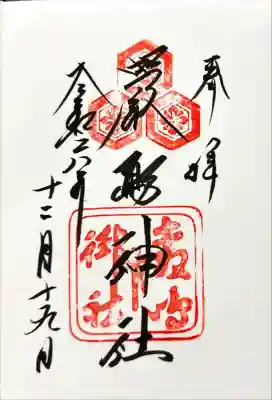 奉拝
嚴島神社
令和六年
十二月十九日